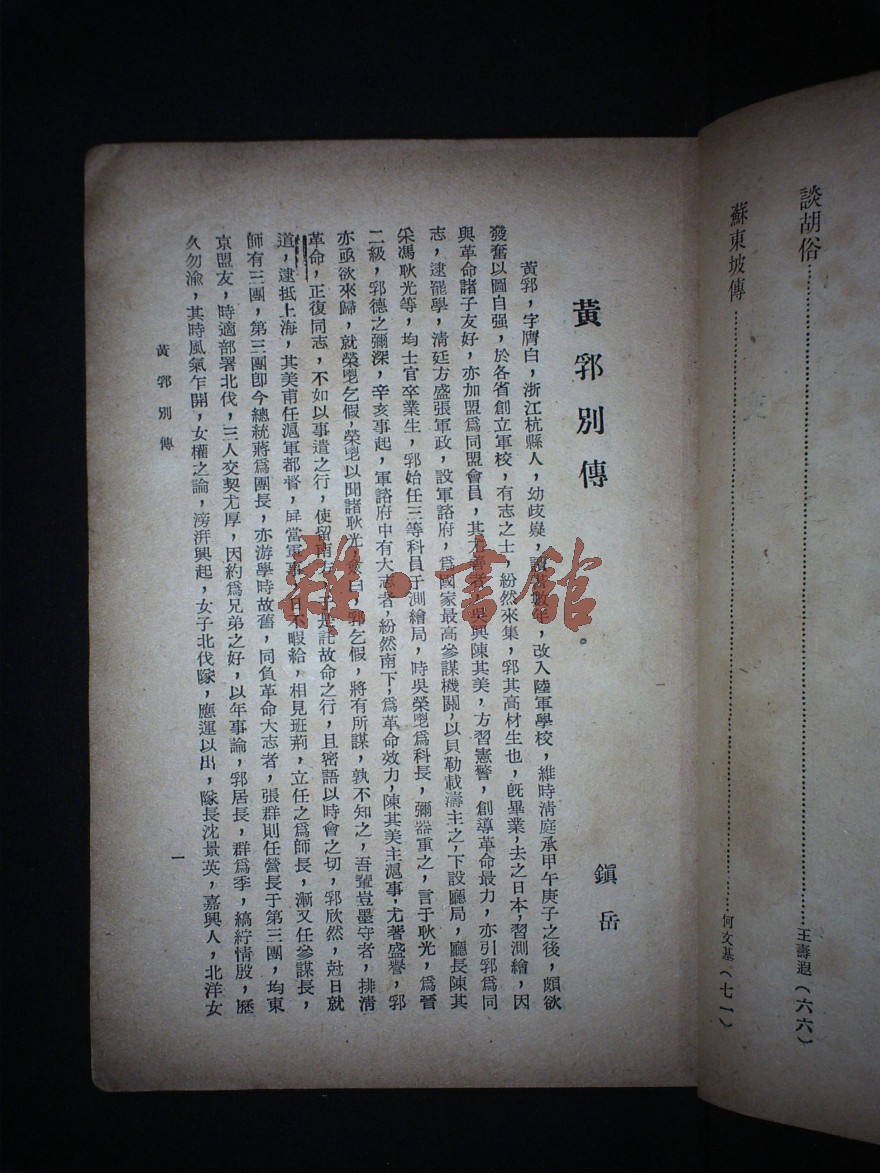 談胡俗……………………王壽遐(六六)
蘇東坡傳……………………何文基(七一)
黃郛別傳
鎭岳
黃郛,字膺白,浙江杭縣人,幼歧嶷,讀書數年,改入陸軍學校,維時淸庭承甲午庚子之後,頗欲
發奮以圖自强,於各省創立軍校,有志之士,紛然來集,郛其高材生也,旣畢業,去之日本,習測繪,因
與革命諸子友好,亦加盟爲同盟會員,其尤善者,吳興陳其美,方習憲警,創導革命最力,亦引郛爲同
志,逮罷學,淸廷方盛張軍政,設軍諮府,爲國家最高參謀機關,以貝勒載濤主之,下設廳局,廳長陳其
采馮耿光等,均士官卒業生,郛始任三等科員于測繪局,時吳榮鬯爲科長,彌器重之,言于耿光,爲晉
二級,郛德之彌深,辛亥事起,軍諮府中有大志者,紛然南下,爲革命效力,陳其美主滬事,尤著盛譽,郛
亦亟欲來歸,就榮鬯乞假,榮鬯以聞諸耿光,僉曰,郛乞假,將有所謀,孰不知之,吾輩豈墨守者,排淸
革命,正復同志,不如以事遣之行,使留南方,于是託故命之行,且密語以時會之切,郛欣然,尅日就
道,逮抵上海,其美甫任滬軍都督,屛當軍事,日不暇給,相見班荊,立任之爲師長,漸又任參謀長,
師有三團,第三團卽今總統蔣爲團長,亦游學時故舊,同負革命大志者,張群則任營長于第三團,均東
京盟友,時適部署北伐,三人交契尤厚,因約爲兄弟之好,以年事論,郛居長,群爲季,縞紵情殷,歷
久勿渝,其時風氣乍開,女權之論,滂湃興起,女子北伐隊,應運以出,隊長沈景英,嘉興人,北洋女
黃郛別傳
一
雜·書館